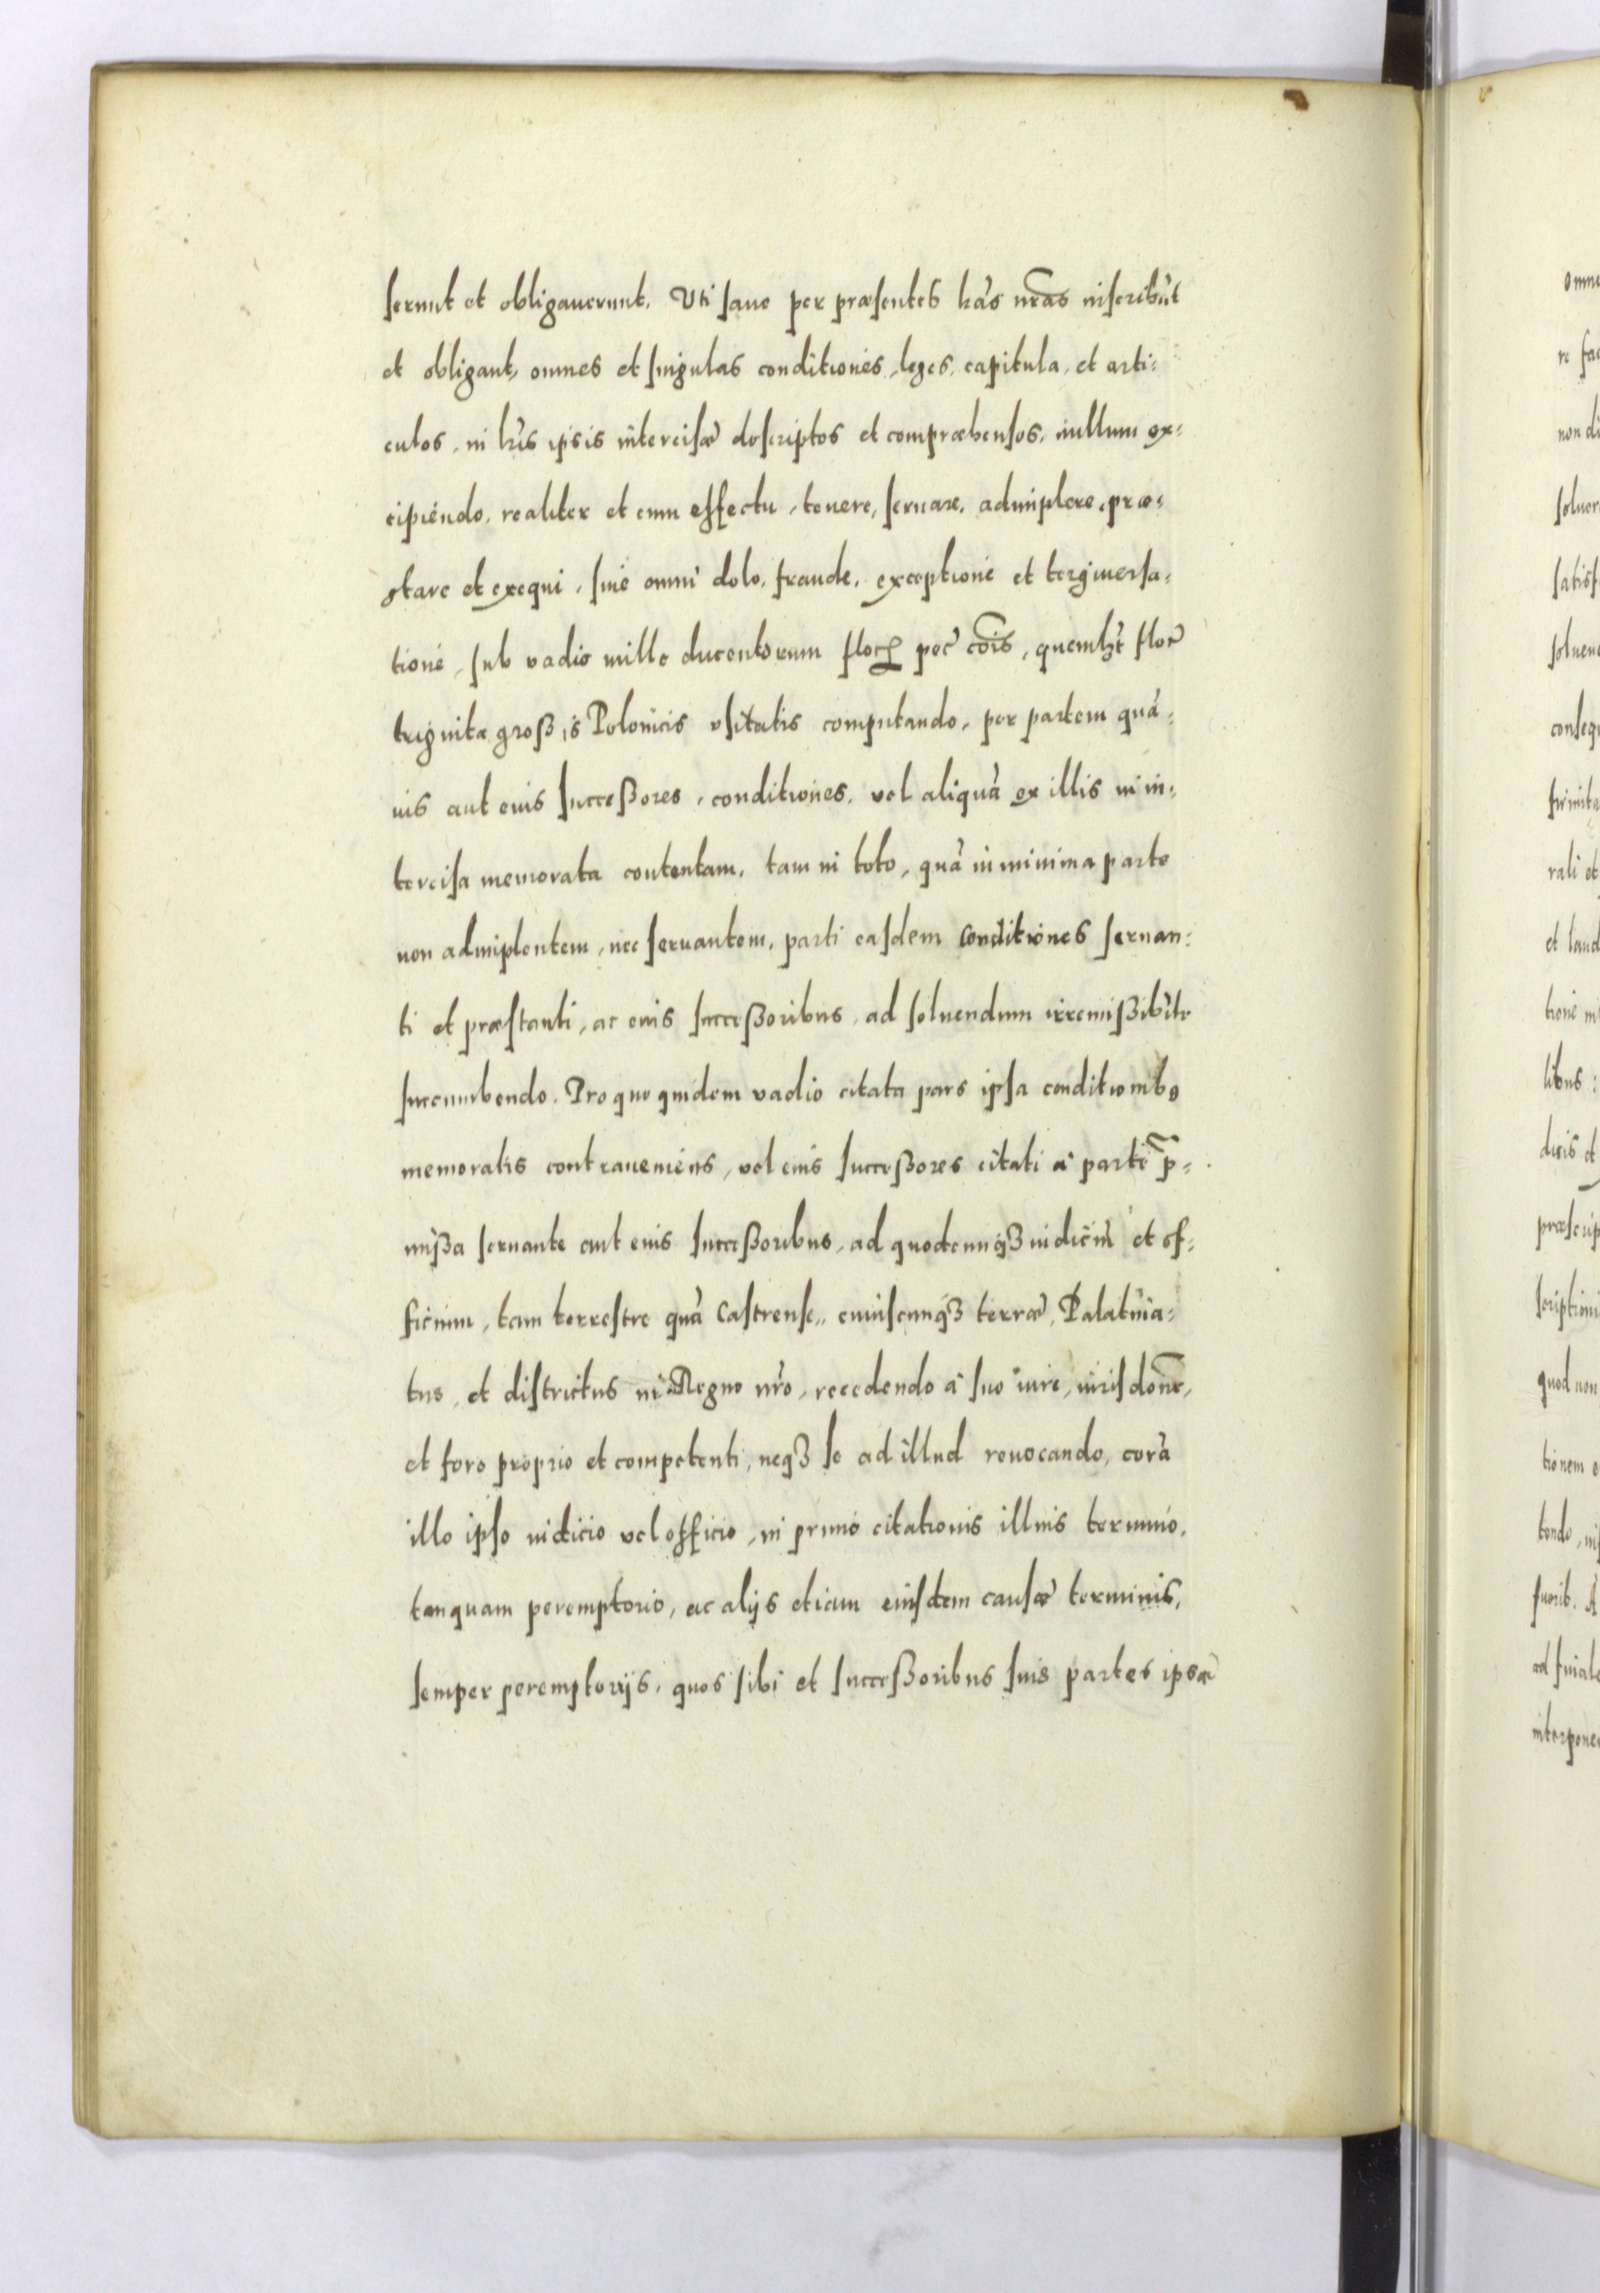 serunt et obligauerunt. Uti sane per præsentes lr̃as nr̃as inscribũt
et obligant, omnes et singulas conditiones, leges, capitula, et arti=
culos, in lr̃is ipsis intercisæ descriptos et compræhensos, nullum ex=
cipiendo, realiter et cum effectu, tenere, seruare, adimplere, præ=
stare et exequi, sine omni dolo, fraude, exceptione et tergiuersa=
tione, sub vadio mille ducentorum floꝝ pec̃ cõis, quemlꝫt flor̃
triginta großis Polonicis vsitatis computando, per partem quã=
uis aut eius succeßores, conditiones, vel aliquã ex illis in in=
tercisa memorata contentam, tam in toto, quã in minima parte
non adimplentem, nec seruantem, parti easdem conditiones seruan=
ti et præstanti, ac eius succeßoribus, ad soluendum irremißibilr̃
succumbendo. Pro quo quidem vadio citata pars ipsa conditionibꝰ
memoratis contraueniens, vel eius succeßores citati à parte p̃=
mißa seruante aut eius succeßoribus, ad quodcunqꝫ iudiciũ et of=
ficium, tam terrestre quã Castrense, cuiuscunqꝫ terræ, Palatina=
tus, et districtus in Regno nr̃o, recedendo à suo iure, iurisdone͂,
et foro proprio et competenti, neqꝫ se ad illud reuocando, corã
illo ipso iudicio vel officio, in primo citationis illius termino,
tanquam peremptorio, ac alijs etiam eiusdem causæ terminis,
semper peremptorijs, quos sibi et succeßoribus suis partes ipsæ